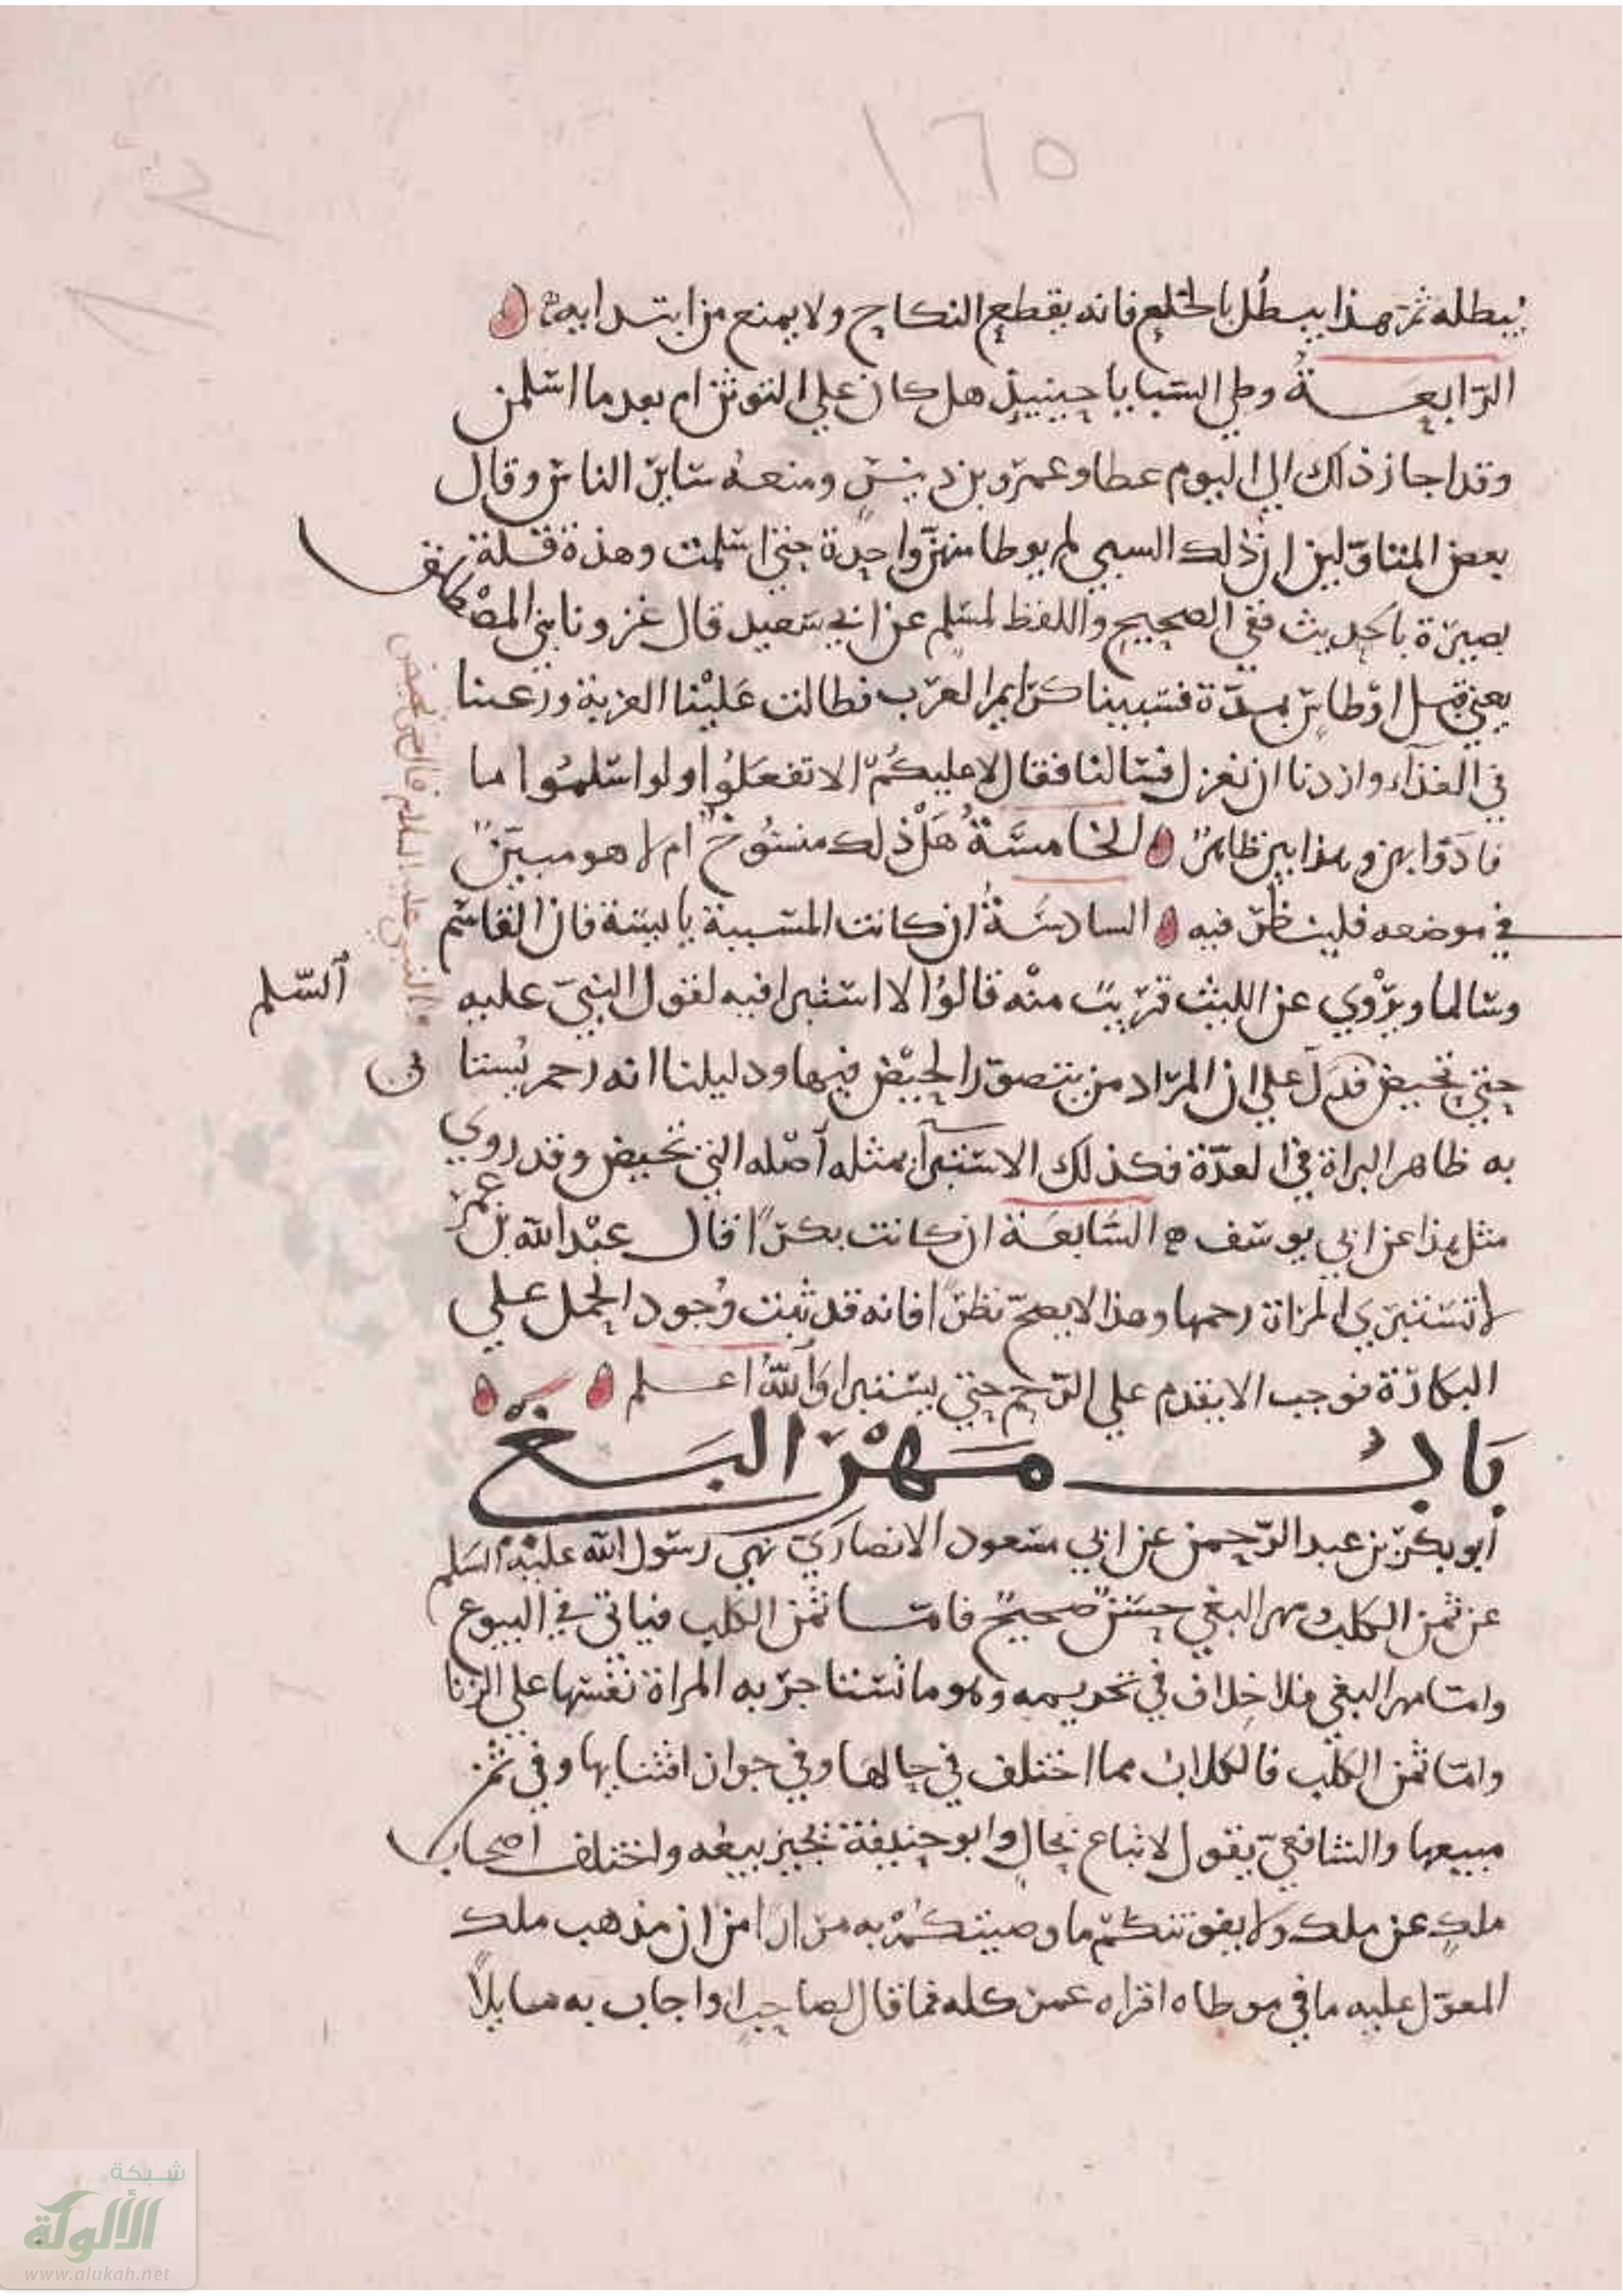 ١٦٥
يبطله ثم هذا يبطل بالخلع فانه يقطع النكاح ولا يمنع من ابتدايه
الرابعة وطي السبايا حينيذ هل كان علي التوثن ام بعد ما اسلمن
وقد اجاز ذلك الي اليوم عطا وعمرو بن دينر ومنعه ساير الناس وقال
بعض المتاولين ان ذلك السبي لم يوطا منهن واحدة حتي اسلمت وهذة قلة
بصيرة بالحديث ففي الصحيح واللفظ لمسلم عن ابي سعيد قال غزونا بني المصطلق
يعني قبل اوطاس بمدة فسبينا كرايم العرب فطالت علينا العزبة ورغبنا
في الفداء واردنا ان نعزل فسالنا فقال لا عليكم الا تفعلوا ولو اسلموا ما
فادوا بهن وهذا بين ظاهر الخامسة هل ذلك منسوخ ام لا هو مبين
في موضعه فلينظر فيه السادسة ان كانت المسبية يايسة فان القاسم
وسالما ويروي عن الليث قريب منه قالوا لا استبرا فيه لقول النبي عليه السلم
حتي تحيض فدل علي ان المراد من يتصور الحيض فيها ودليلنا انه رحم يستبا
به ظاهر البراة في العدة فكذلك الاستبرا بمثله اصله التي تحيض وقد روي
مثل هذا عن ابي يوسف السابعة ان كانت بكرا فقال عبد الله بن عمر
لا تستبري المراة رحمها وهذا لا يصح نظرا فانه قد ثبت وجود الحمل علي
البكارة فوجب الا يقدم علي الرحم حتي يستبرا والله اعلم
باب مهر البغي
ابو بكر بن عبد الرحمن عن ابي مسعود الانصاري نهي رسول الله عليه السلم
عن ثمن الكلب ومهر البغي حسن صحيح فاما ثمن الكلب فياتي في البيوع
واما مهر البغي فلا خلاف في تحريمه وهو ما تستاجر به المراة نفسها علي الزنا
واما ثمن الكلب فالكلاب مما اختلف في حالها وفي جواز اقتنايها وفي ثمن
مبيعها والشافعي يقول لا تباع بحال وابو حنيفة يجيز بيعه واختلف اصحاب
ملك عن ملك ولا يفوتنكم ما وصيتكم به مرارا من ان مذهب ملك
المعول عليه ما في موطاه اقراه عمره كله فما قال لصاحب او اجاب به سايلا
شبكة
الألوكة
www.alukah.net